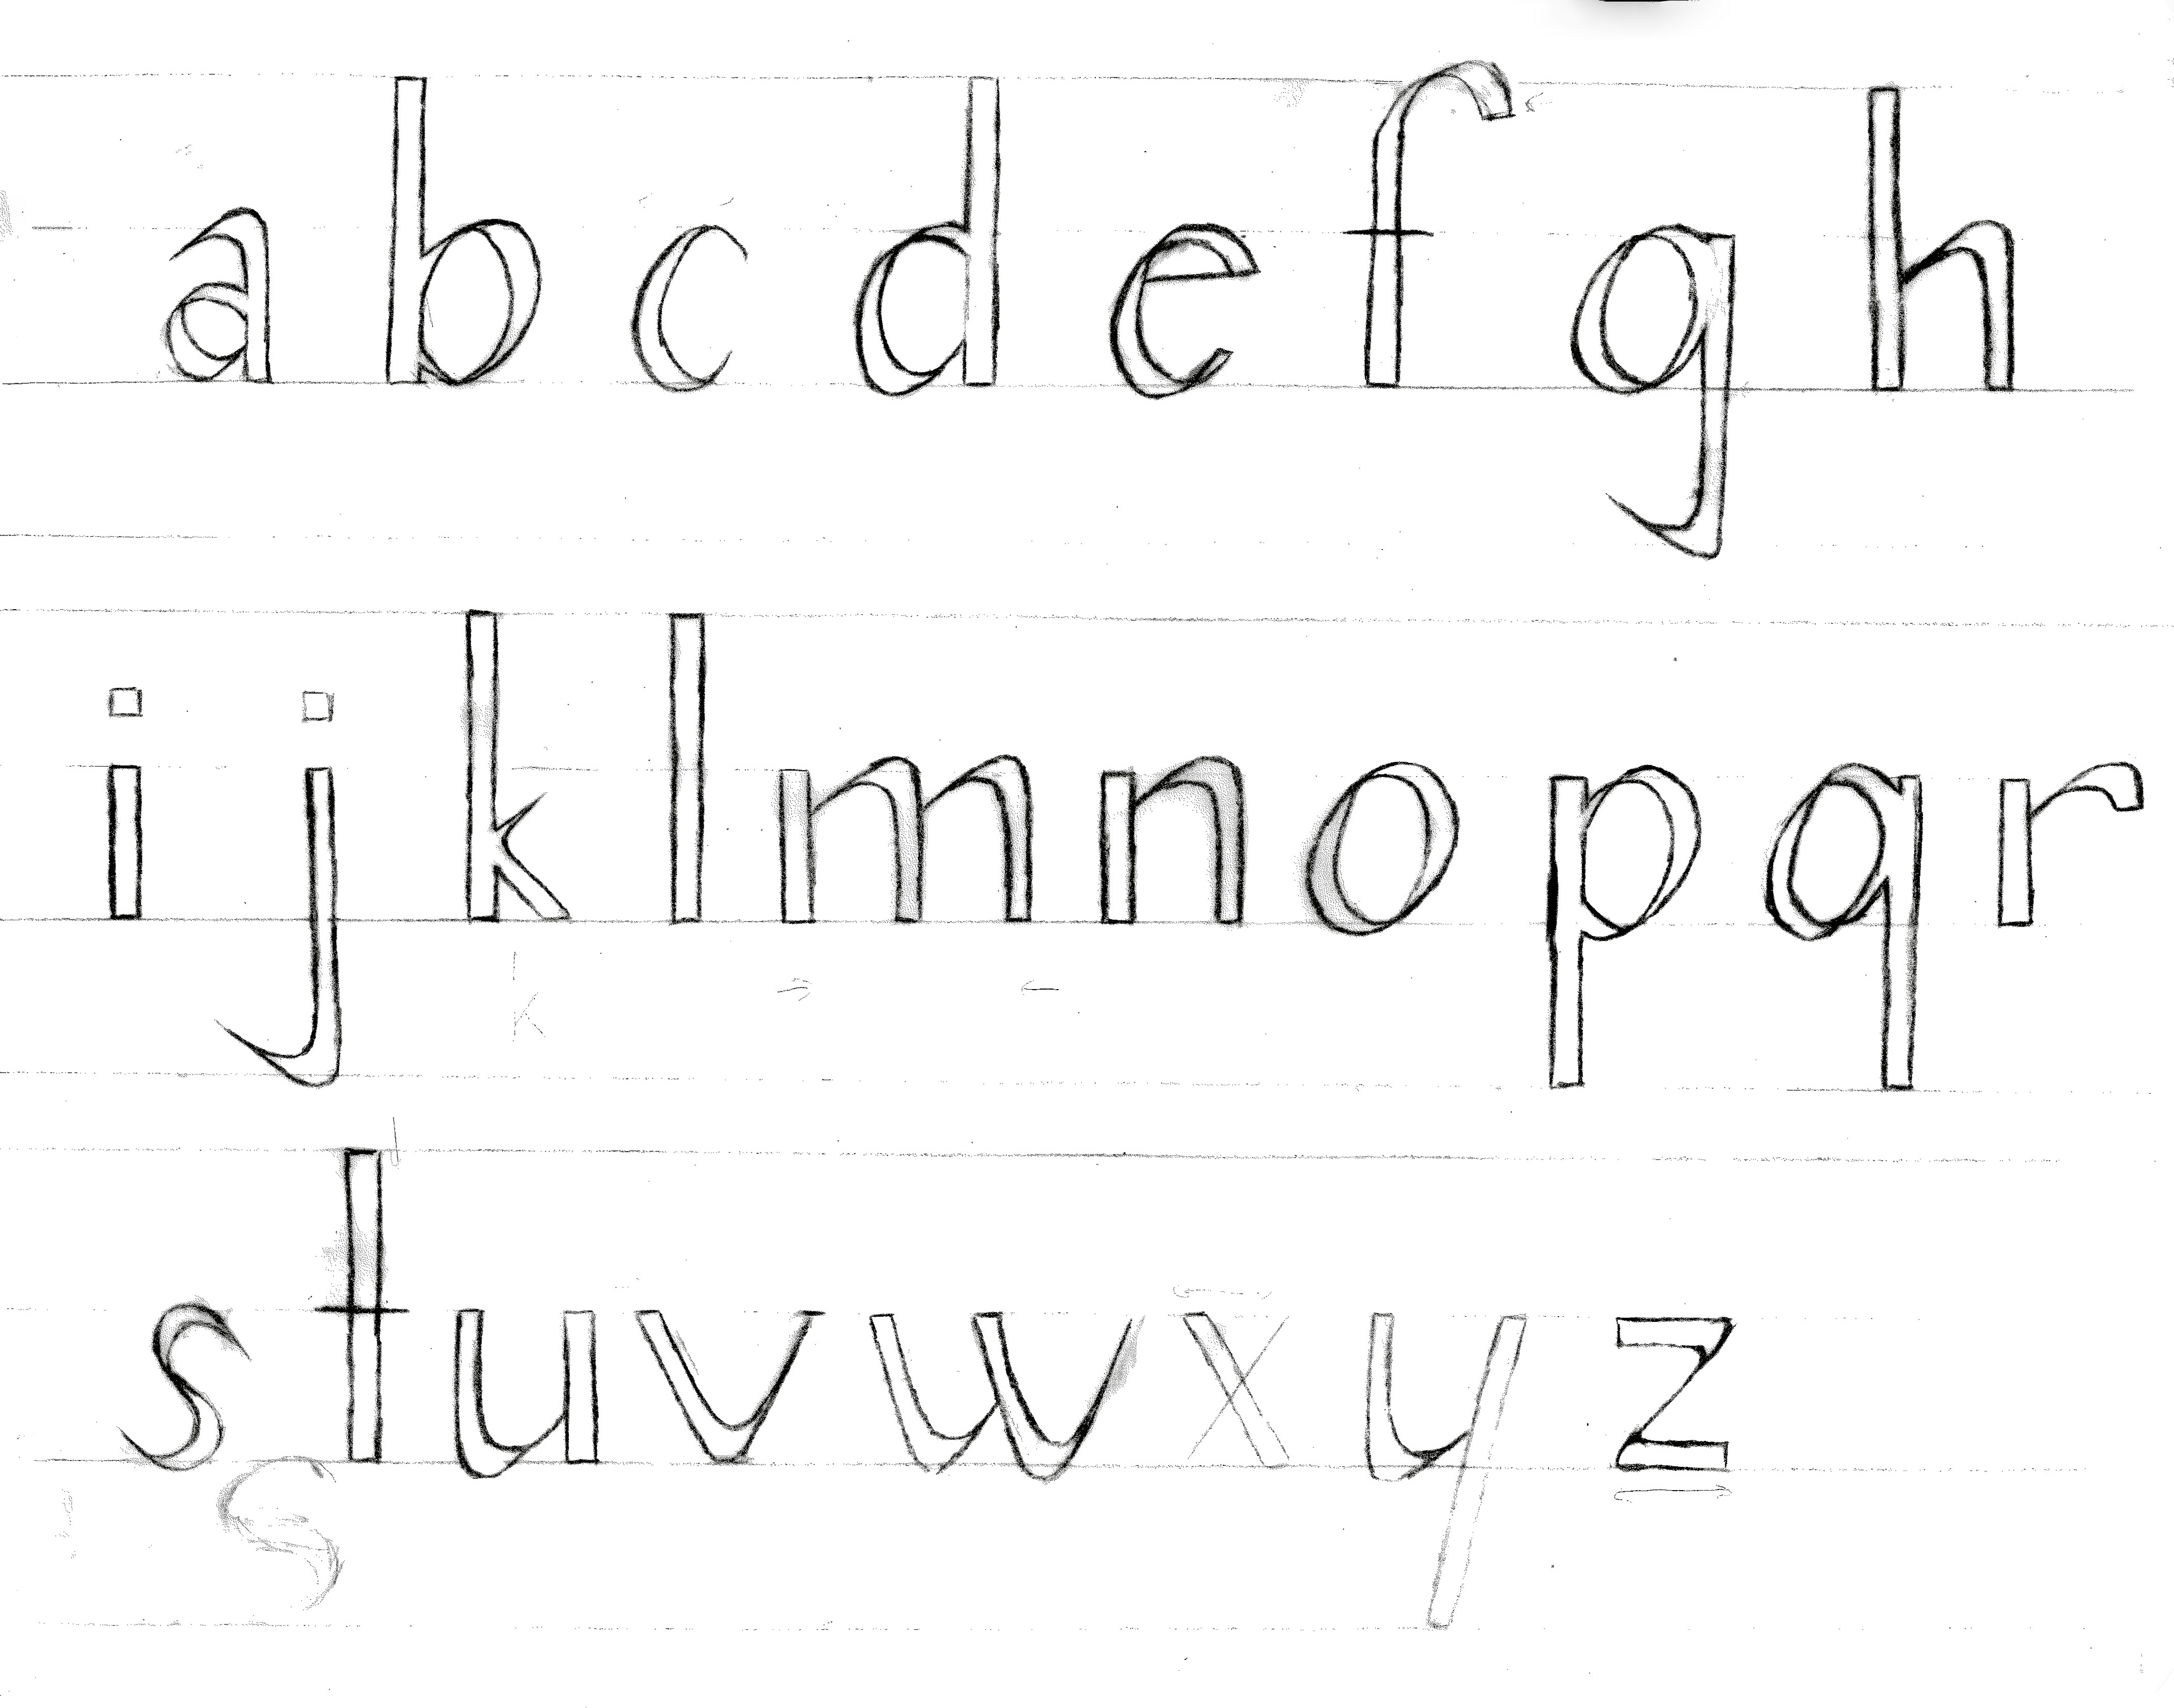 a b c d e f g h
i j k l m n o p q r
k
s t u v w x y z
s